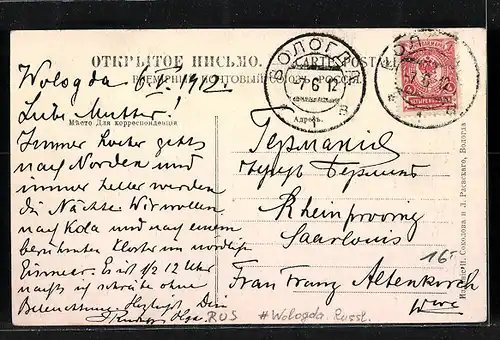 ОТКРЫТОЕ ПИСЬМО. CARTE POSTALE
ВСЕМІРНЫЙ ПОЧТОВЫЙ СОЮЗЪ. РОССІЯ.
ВОЛОГДА
7 6 12
Мѣсто Для корреспонденціи
Адресъ.
Wologda 6.V. 1912.
Liebe Mutter!
Immer hoeher gehts
nach Norden und
immer heller werden
die Nächte. Wir wollen
nach Kola und nach einem
berühmten Kloster im nördlichen
Eismeer. Es ist 1/2 12 Uhr
nachts ich schreibe ohne
Beleuchtung. Herzlichst Dein
Германія
черезъ Берлинъ
Rheinprovinz
Saarlouis
Frau Franz Altenkirch
Wwe
16-
RUS #Wologda. Russl.
Соколова и Л. Раевскаго, Вологда